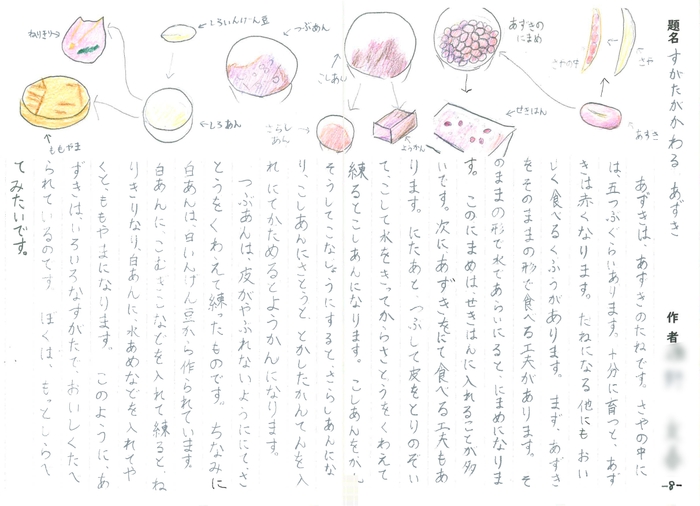 題名 すがたがかわる あずき
作者
-8-
あずき
さや
さやの中
あずきのにまめ
せきはん
こしあん
ようかん
さらしあん
つぶあん
しろいんげん豆
しろあん
ねりきり
ももやま
あずきは、あずきのたねです。さやの中に
は、五つぶぐらいあります。十分に育つと、あず
きは赤くなります。たねになる他にも おい
しく食べるくふうがあります。まず、あずき
をそのままの形で食べる工夫があります。そ
のままの形で水であらいにると、にまめになりま
す。このにまめは、せきはんに入れることが多
いです。次にあずきをにて食べる工夫もあ
ります。にたあと、つぶして皮をとりのぞい
て、こして水をきってからさとうをくわえて
練るとこしあんになります。こしあんをかん
そうしてこなじょうにすると、さらしあんにな
り、こしあんにさとうと、とかしたかんてんを入
れ にてかためるとようかんになります。
つぶあんは、皮がやぶれないようににて、さ
とうをくわえて練ったものです。ちなみに
白あんは、白いんげん豆から作られています。
白あんに、こむぎこなどを入れて練ると、ね
りきりなり、白あんに、水あめなどを入れてや
くと、ももやまになります。このように、あ
ずきは、いろいろなすがたで、おいしくたべ
られているのです。ぼくは、もっとしらべ
てみたいです。